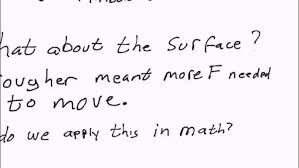 hat about the surface?
ougher meant more F needed
to move.
do we apply this in math?